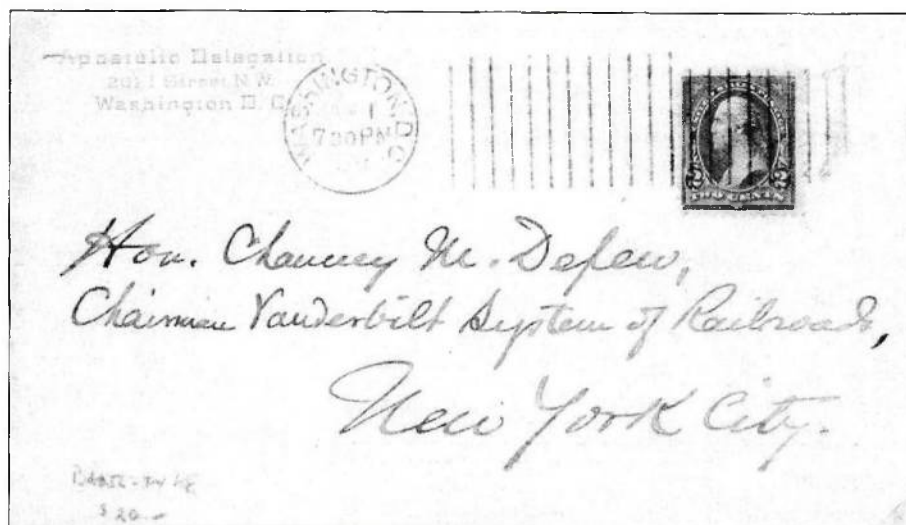 Apostolic Delegation
201 I Street N.W.
Washington D. C.
WASHINGTON, D.C.
1
7 30 PM
2 2
TWO CENTS
Hon. Chauncey M. Depew,
Chairman Vanderbilt System of Railroads,
New York City.
$ 20 —